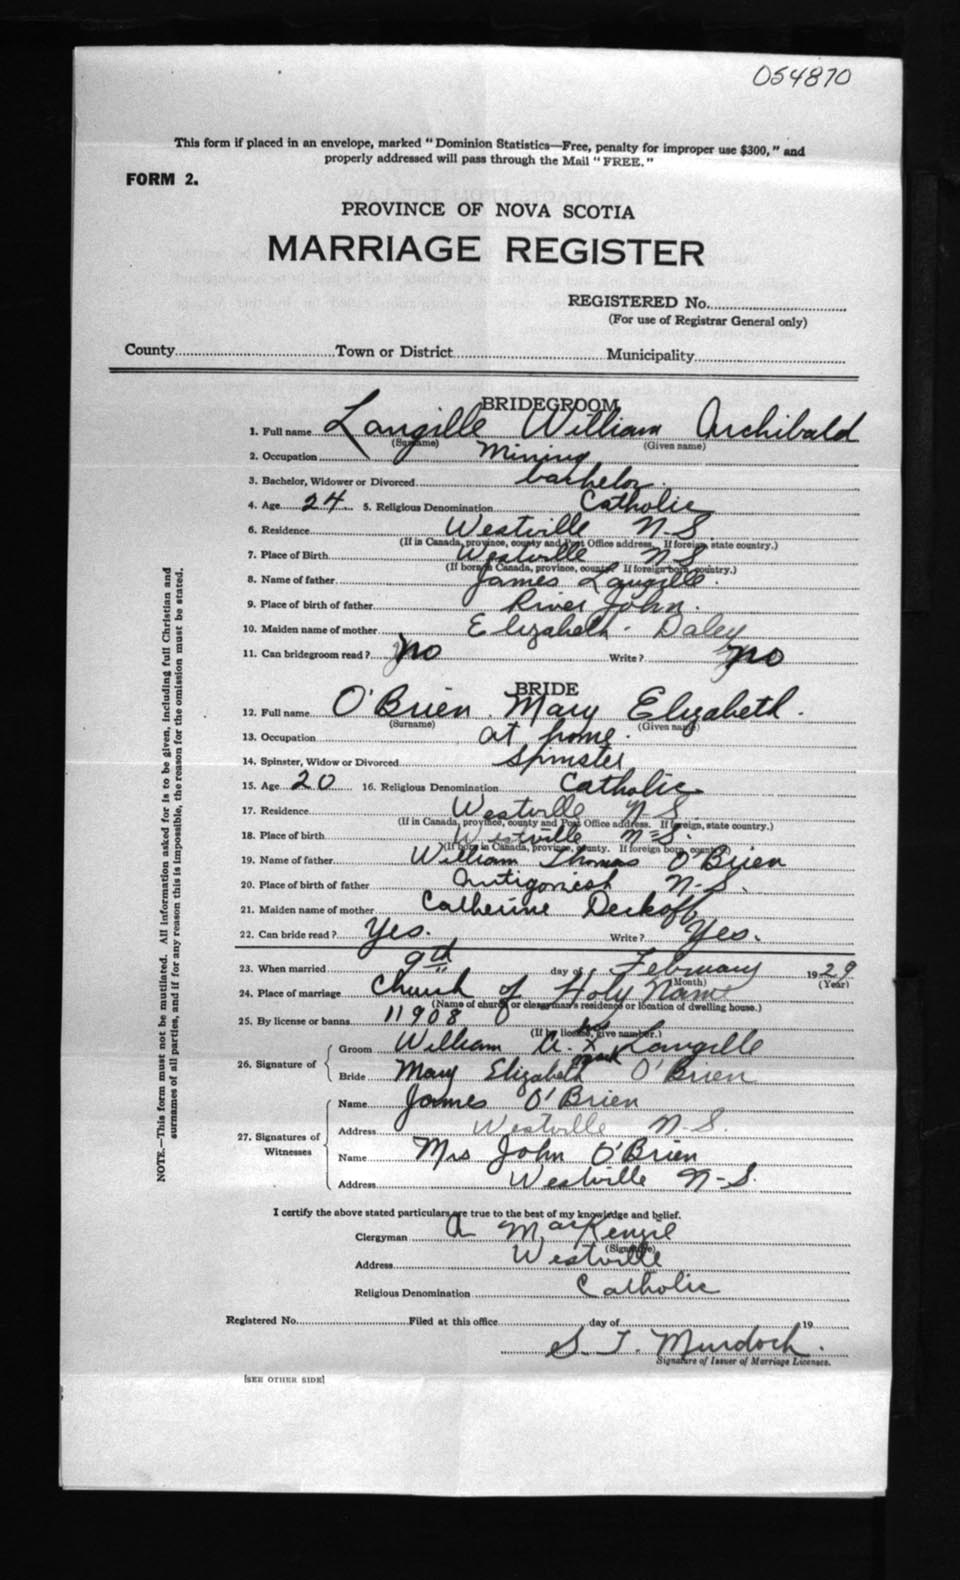 054870
This form if placed in an envelope, marked "Dominion Statistics—Free, penalty for improper use $300," and
properly addressed will pass through the Mail "FREE."
FORM 2.
PROVINCE OF NOVA SCOTIA
MARRIAGE REGISTER
REGISTERED No.
(For use of Registrar General only)
County Town or District Municipality
BRIDEGROOM
1. Full name Langille William Archibald
(Surname) (Given name)
2. Occupation Mining
3. Bachelor, Widower or Divorced bachelor.
4. Age 24 5. Religious Denomination Catholic
6. Residence Westville N.S.
(If in Canada, province, county and Post Office address. If foreign, state country.)
7. Place of Birth Westville N S
(If born in Canada, province, county. If foreign born, country.)
8. Name of father James Langille.
9. Place of birth of father River John.
10. Maiden name of mother Elizabeth Daley
11. Can bridegroom read? No Write? No
BRIDE
12. Full name O'Brien Mary Elizabeth.
(Surname) (Given name)
13. Occupation at home.
14. Spinster, Widow or Divorced Spinster
15. Age 20 16. Religious Denomination Catholic
17. Residence Westville N-S
(If in Canada, province, county and Post Office address. If foreign, state country.)
18. Place of birth Westville N-S.
(If born in Canada, province, county. If foreign born, country.)
19. Name of father William Thomas O'Brien
20. Place of birth of father Antigonish N-S.
21. Maiden name of mother Catherine
22. Can bride read? Yes. Write? Yes.
23. When married 9th day of February 1929
(Month) (Year)
24. Place of marriage Church of Holy Name
(Name of church or clergyman's residence or location of dwelling house.)
25. By license or banns 11908
(If by license, give number.)
26. Signature of
Groom William A. his x mark Langille
Bride Mary Elizabeth O'Brien
27. Signatures of Witnesses
Name James O'Brien
Address Westville N-S.
Name Mrs John O'Brien
Address Westville N-S.
I certify the above stated particulars are true to the best of my knowledge and belief.
Clergyman A MacKenzie
(Signature)
Address Westville
Religious Denomination Catholic
Registered No. Filed at this office day of 19
S. T. Murdoch.
Signature of Issuer of Marriage Licenses.
[SEE OTHER SIDE]
NOTE.—This form must not be mutilated. All information asked for is to be given, including full Christian and
surnames of all parties, and if for any reason this is impossible, the reason for the omission must be stated.